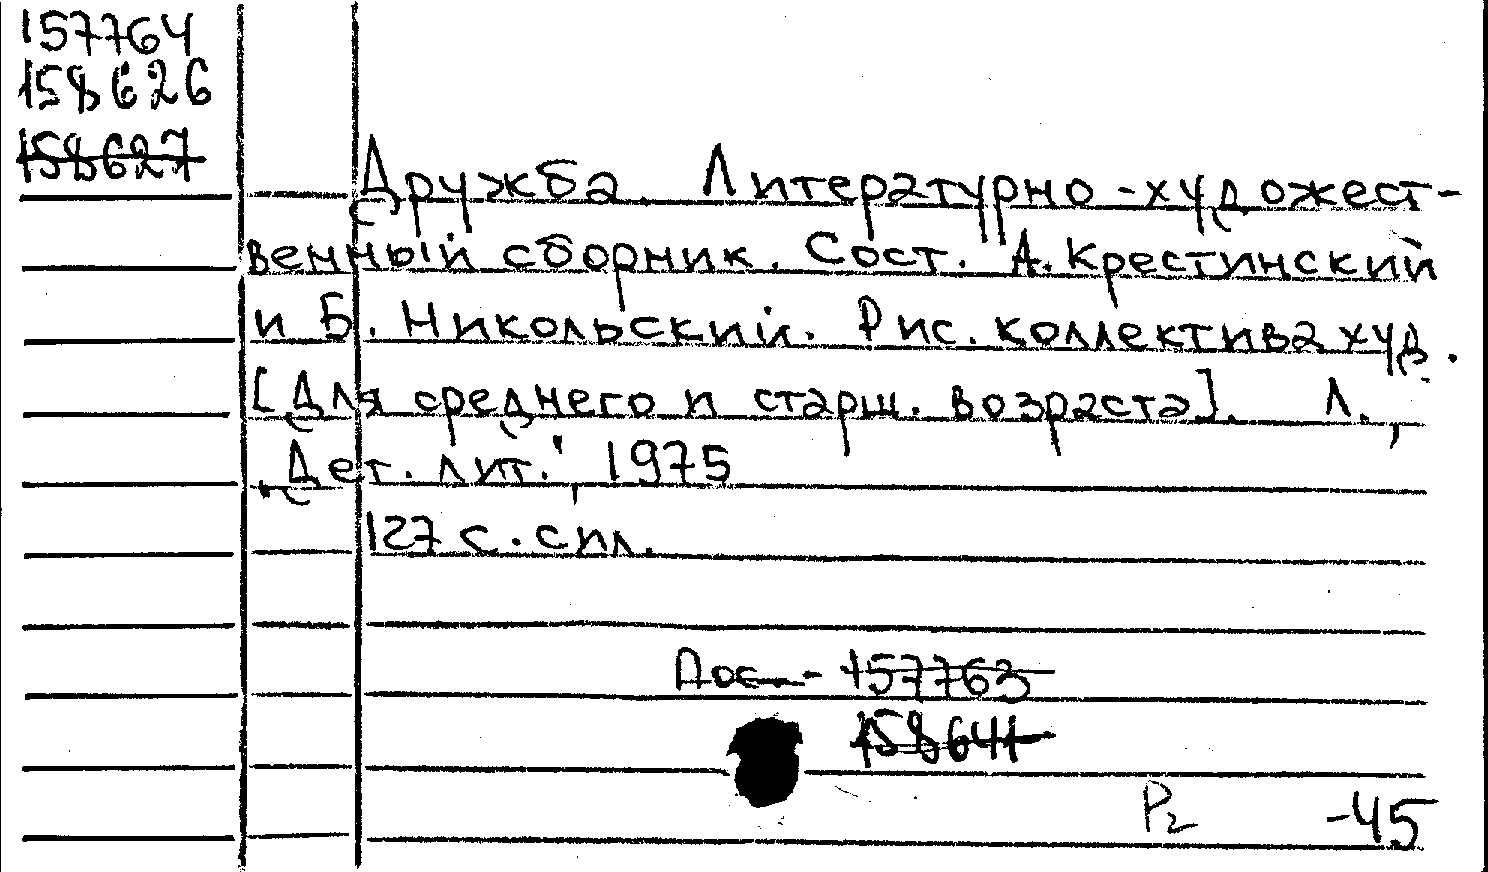 157764
158626
158627
Дружба. Литературно-художест-
венный сборник. Сост. А. Крестинский
и Б. Никольский. Рис. коллектива худ.
[Для среднего и старш. возраста]. Л.,
"Дет. лит.", 1975
127 с. с ил.
157763
158641
Р2 -45